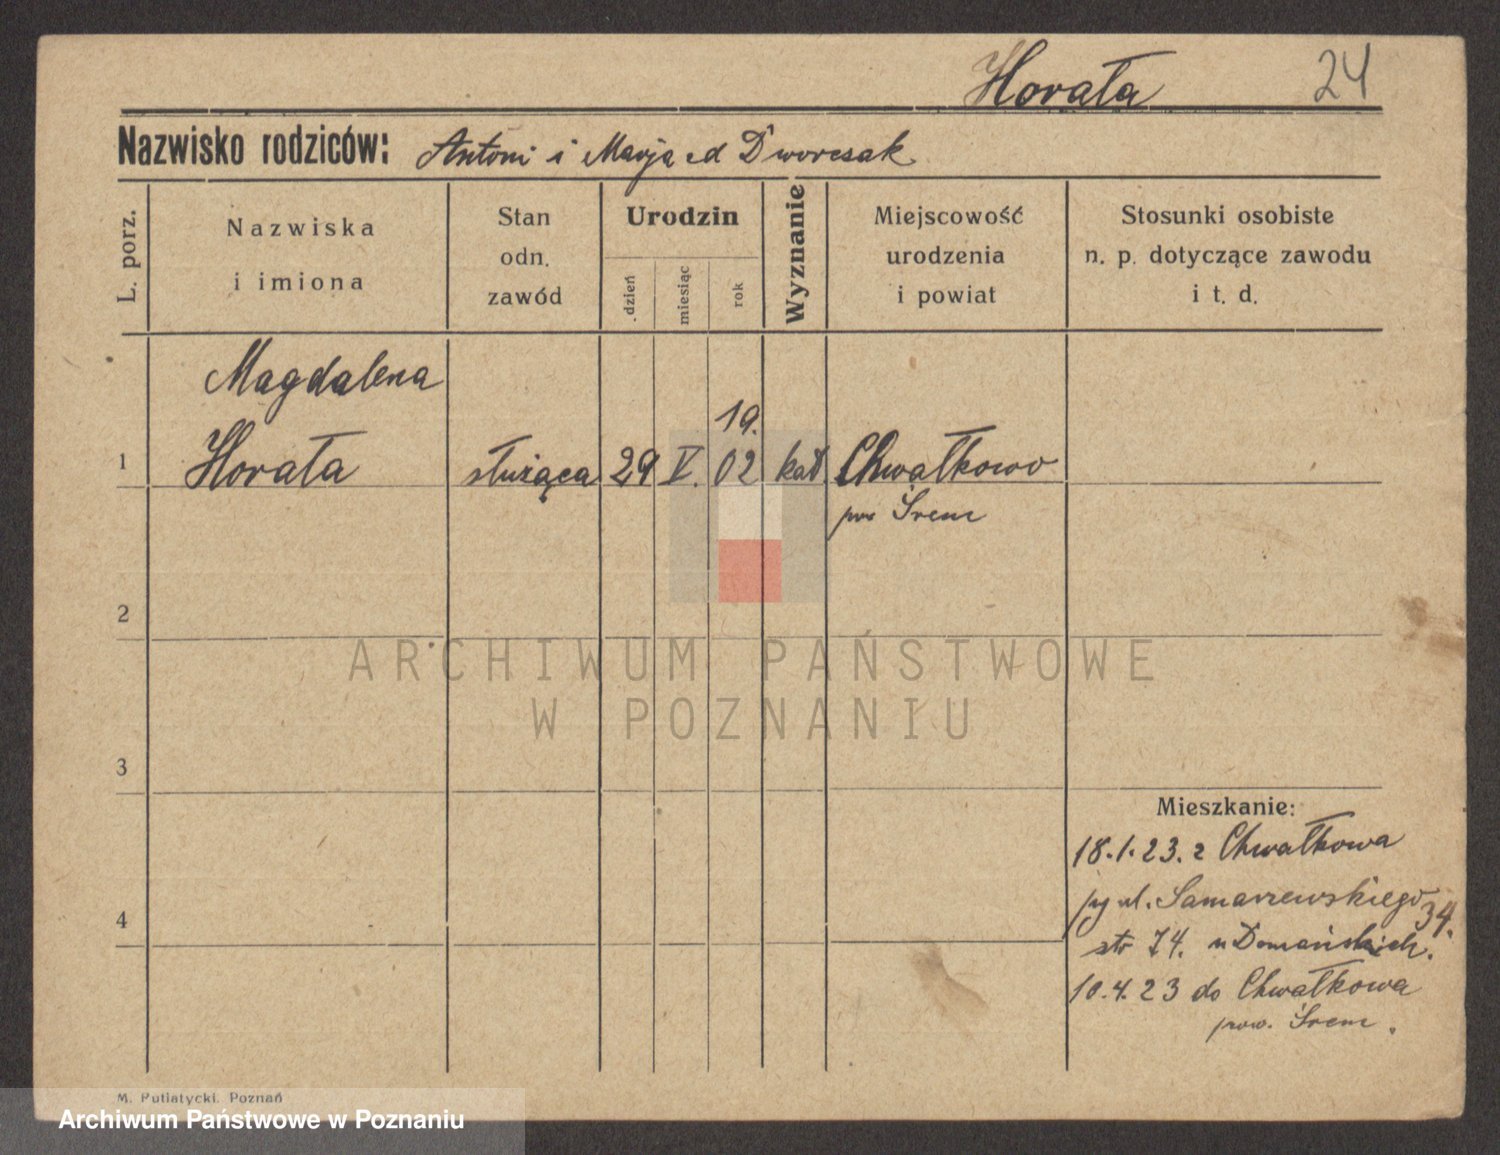 Horała 24
Nazwisko rodziców: Antoni i Marja
L. porz.
Nazwiska
i imiona
Stan
odn.
zawód
Urodzin
dzień
miesiąc
rok
Wyznanie
Miejscowość
urodzenia
i powiat
Stosunki osobiste
n. p. dotyczące zawodu
i t. d.
Magdalena
19.
1 Horała służąca 29 V. 02 kat. Chwałkowo
pow Śrem
2
ARCHIWUM PAŃSTWOWE
W POZNANIU
3
Mieszkanie:
18.1.23. z Chwałkowa
ul. Samarzewskiego 34.
4
str 74. u Domańskich.
10.4.23 do Chwałkowa
pow. Śrem.
M. Putiatycki. Poznań
Archiwum Państwowe w Poznaniu